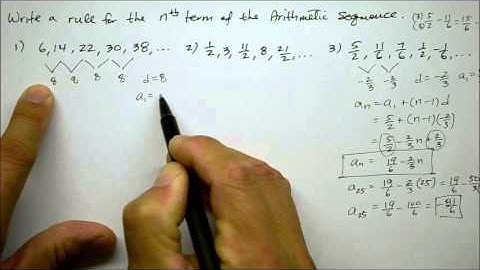 Write a rule for the nth term of the Arithmetic Sequence.
(3) 5/2 - 11/6 = 15/6 -
1) 6, 14, 22, 30, 38, ...
8 8 8 8
d = 8
a₁ =
2) 1/2, 3, 11/2, 8, 21/2, ...
3) 5/2, 11/6, 7/6, 1/2, -1/6, ...
-2/3 -2/3 d = -2/3 a₁ =
aₙ = a₁ + (n-1) d
= 5/2 + (n-1)(-2/3)
= 5/2 - 2/3 n + 2/3
aₙ = 19/6 - 2/3 n
a₂₅ = 19/6 - 2/3 (25) = 19/6 - 50/3
a₂₅ = 19/6 - 100/6 = -81/6